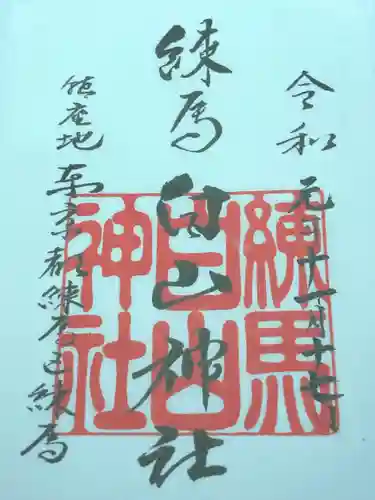 令和元年十一月十七
練馬白山神社
鎮座地東京都練馬区練馬
練馬
白山
神社